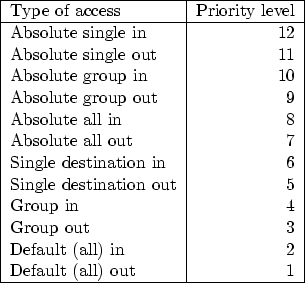 Type of access Priority level
Absolute single in 12
Absolute single out 11
Absolute group in 10
Absolute group out 9
Absolute all in 8
Absolute all out 7
Single destination in 6
Single destination out 5
Group in 4
Group out 3
Default (all) in 2
Default (all) out 1